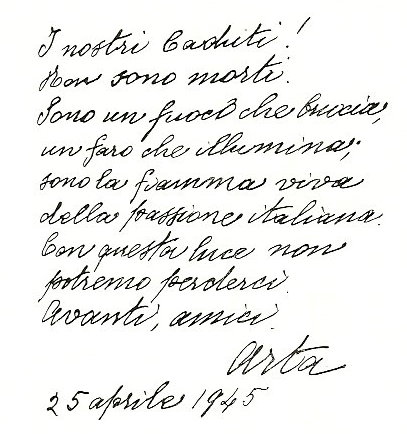 I nostri Caduti!
Non sono morti.
Sono un fuoco che brucia,
un faro che illumina;
sono la fiamma viva
della passione italiana.
Con questa luce non
potremo perderci.
Avanti, amici.
Arta
25 aprile 1945